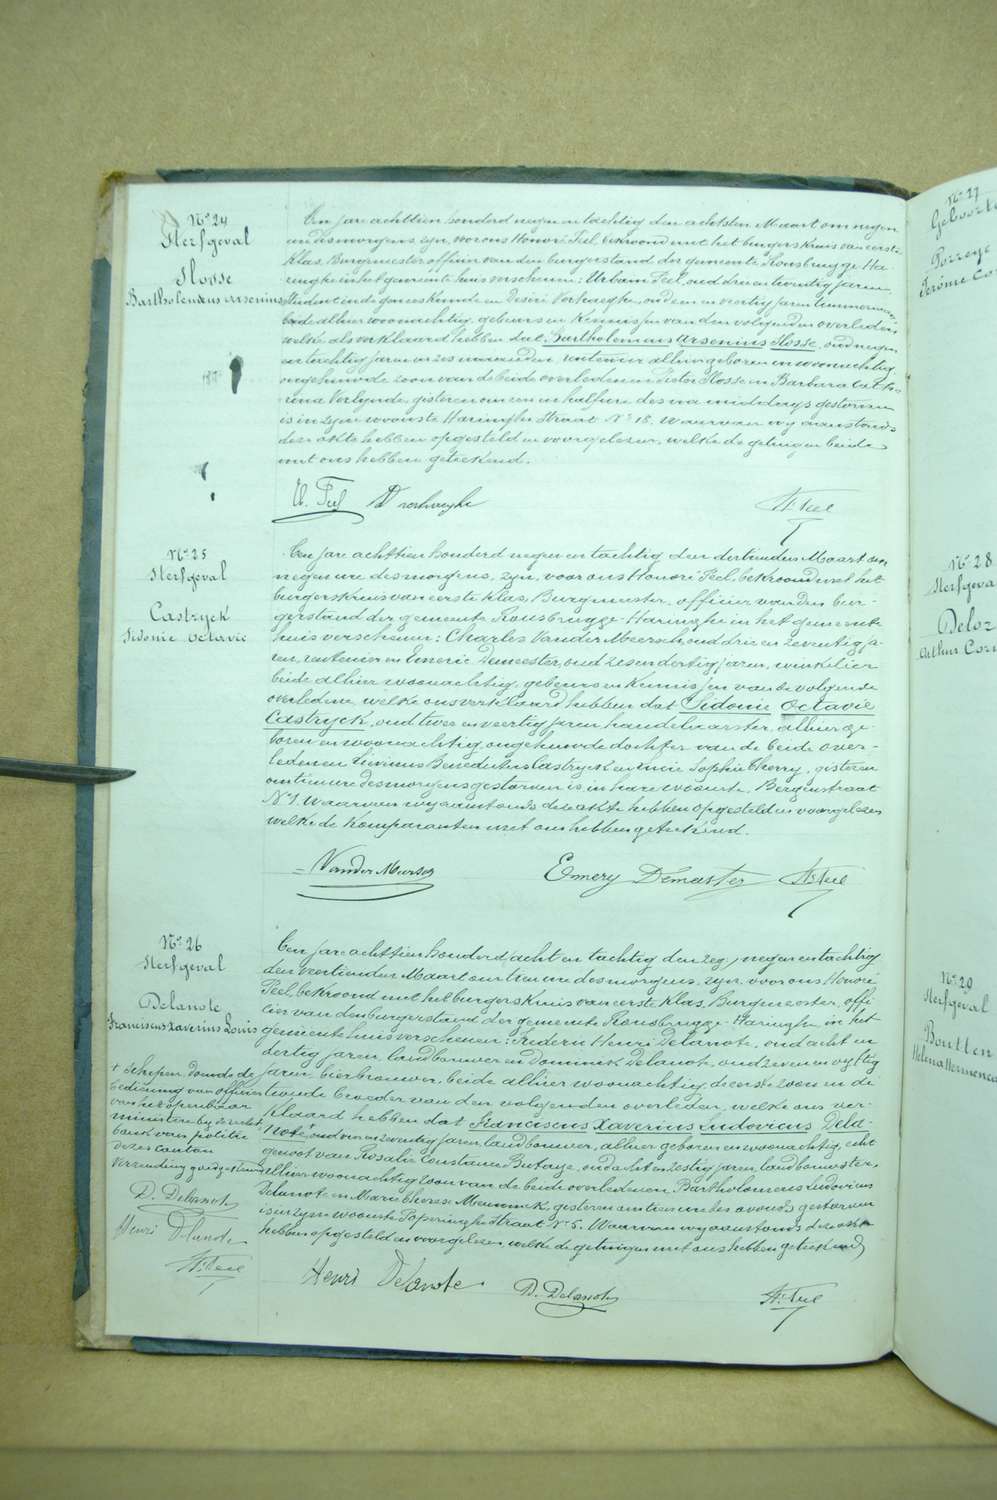 N° 24
Sterfgeval
Slosse
Bartholemëus Arsenius
Een jare achttien honderd negen en tachtig den achtsten Maart om negen
ure des morgens, zyn, voor ons Honoré Feel, bekroond met het burgerskruis van eerste
klas, Burgmeester officier van den burgerstand der gemeente Rousbrugge-Ha-
ringhe in het gemeente huis verschenen: Urbain Feel, oud drie en twintig jaren,
student in de geneeskunde en Désiré Verhaeghe, oud en veertig jaren timmerman
beide alhier woonachtig, geburen en kennissen van den volgenden overleden
welke als verklaard hebben dat Bartholemeus Arsenius Slosse, oud negen
en tachtig jaren en zes maanden, rentenier alhier geboren en woonachtig,
ongehuwde zoon van de beide overledenen Pieter Slosse en Barbara Catha-
rina gisteren om een en half ure des na middags gestorven
is in zyn woonste Haringhe Straat N° 18. Waarvan wy aanstonds
dezen akte hebben opgesteld en voorgelezen, welke de getuigen beide
met ons hebben geteekend.
U. Feel D Verhaeghe H. Feel
N° 25
Sterfgeval
Castryck
Sidonie Octavie
Een jare achttien honderd negen en tachtig den dertienden Maart om
negen ure des morgens, zyn, voor ons Honoré Feel, bekroond met het
burgerskruis van eerste klas, Burgmeester, officier van den bur-
gerstand der gemeente Rousbrugge-Haringhe in het gemeente
huis verschenen: Charles Vander Meersch, oud drie en zeventig ja-
ren, rentenier en Emerie Demeester, oud zes en dertig jaren, winkelier
beide alhier woonachtig, geburen en kennissen van de volgende
overledene, welke ons verklaard hebben dat Sidonie Octavie
Castryck, oud twee en veertig jaren handelaarster, alhier ge-
boren en woonachtig, ongehuwde dochter van de beide over-
ledenen Livinus Benedictus Castryck en Sophie Therry, gisteren
om tien ure des morgens gestorven is in hare woonste, Bergenstraat
N° 1. Waarvan wy aanstonds deze akte hebben opgesteld en voorgelezen
welke de komparanten met ons hebben geteekend.
Vander Meersch Emery Demeester H. Feel
N° 26
Sterfgeval
Delanote
Franciscus Xaverius Louis
Een jare achttien honderd /acht en tachtig den zeg/ negen en tachtig
den veertienden Maart om tien ure des morgens, zyn, voor ons Honoré
Feel, bekroond met het burgerskruis van eerste klas, Burgmeester, offi
cier van den burgerstand der gemeente Rousbrugge-Haringhe in het
gemeente huis verschenen: Frederic Henri Delanote, oud acht en
dertig jaren, landbouwer en Dominiek Delanote, oud zeven en vyftig
jaren, bierbrouwer, beide alhier woonachtig, de eerste zoon en de
tweede broeder van den volgenden overleden, welke ons ver-
klaard hebben dat Franciscus Xaverius Ludovicus Dela-
note, oud en zeventig jaren, landbouwer, alhier geboren en woonachtig, echt
genoot van Rosalie Constance Butaye, oud acht en zestig jaren, landbouwster,
alhier woonachtig zoon van de beide overledenen Bartholomeus Ludovicus
Delanote en Marie Therese gisteren om tien ure des avonds gestorven
is in zyne woonste Poperinghe Straat N° 5. Waarvan wy aanstonds deze akte
hebben opgesteld en voorgelezen welke de getuigen met ons hebben geteekend
Henri Delanote D. Delanote H. Feel
bediening van officier
van het openbaar
ministerie by de recht
bank van politie
dezes canton
Verzending goedgekeurd
D. Delanote
Henri Delanote
H. Feel
N° 27
Geboorte
Jerôme Co
N° 28
Sterfgeva
Deloz
Arthur Cor
N° 29
Sterfgeval
Boutten